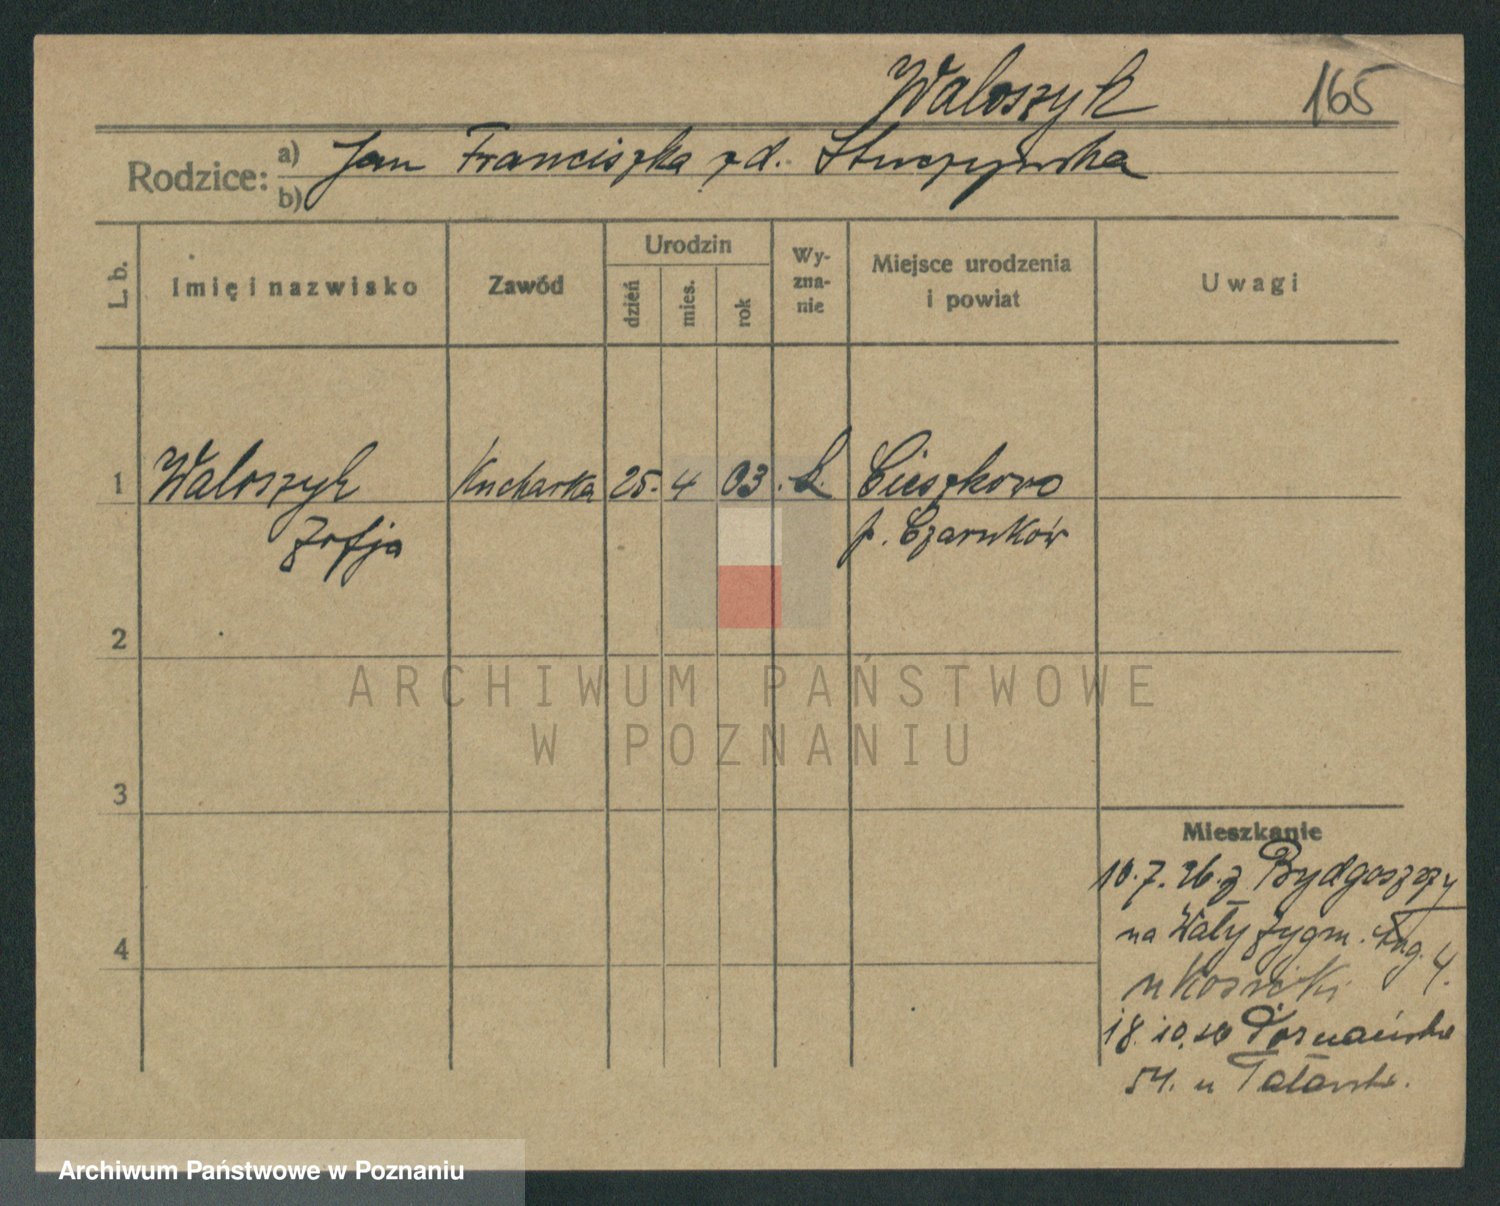 Waloszyk 165
Rodzice: a) Jan Franciszka zd.
b)
L. b. Imię i nazwisko Zawód Urodzin Wy-zna-nie Miejsce urodzenia i powiat Uwagi
dzień mies. rok
1 Waloszyk Kucharka 25. 4 03 . k. Cieszkowo
Zofja p. Czarnków
2
ARCHIWUM PAŃSTWOWE
W POZNANIU
3
Mieszkanie
10.7.26. z Bydgoszczy
na Wały Zygm. Aug. 4.
u
4
18.10.26 Poznańska
54. u
Archiwum Państwowe w Poznaniu